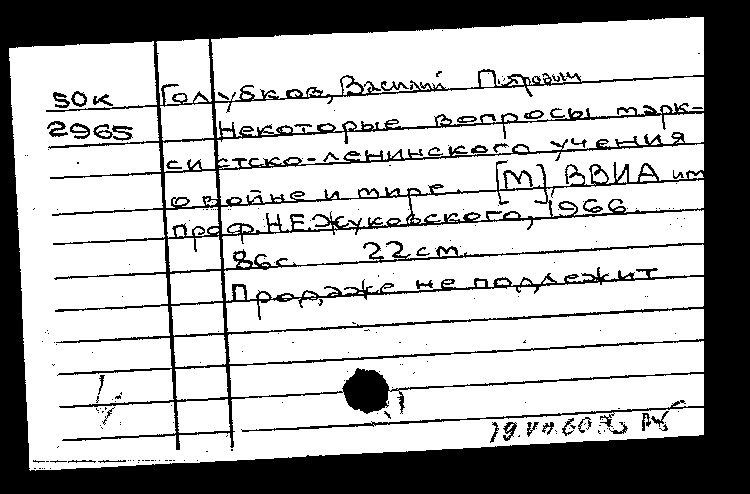 50к Голубков, Василий Петрович
2965 Некоторые вопросы марк-
систско-ленинского учения
о войне и мире. [М], ВВИА им
проф. Н.Е.Жуковского, 1966.
86с. 22см.
Продаже не подлежит